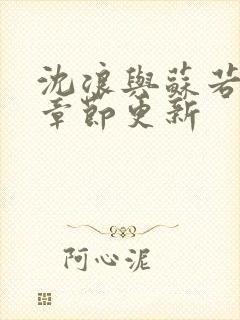 沈浪與蘇若
章節更新
阿心泥